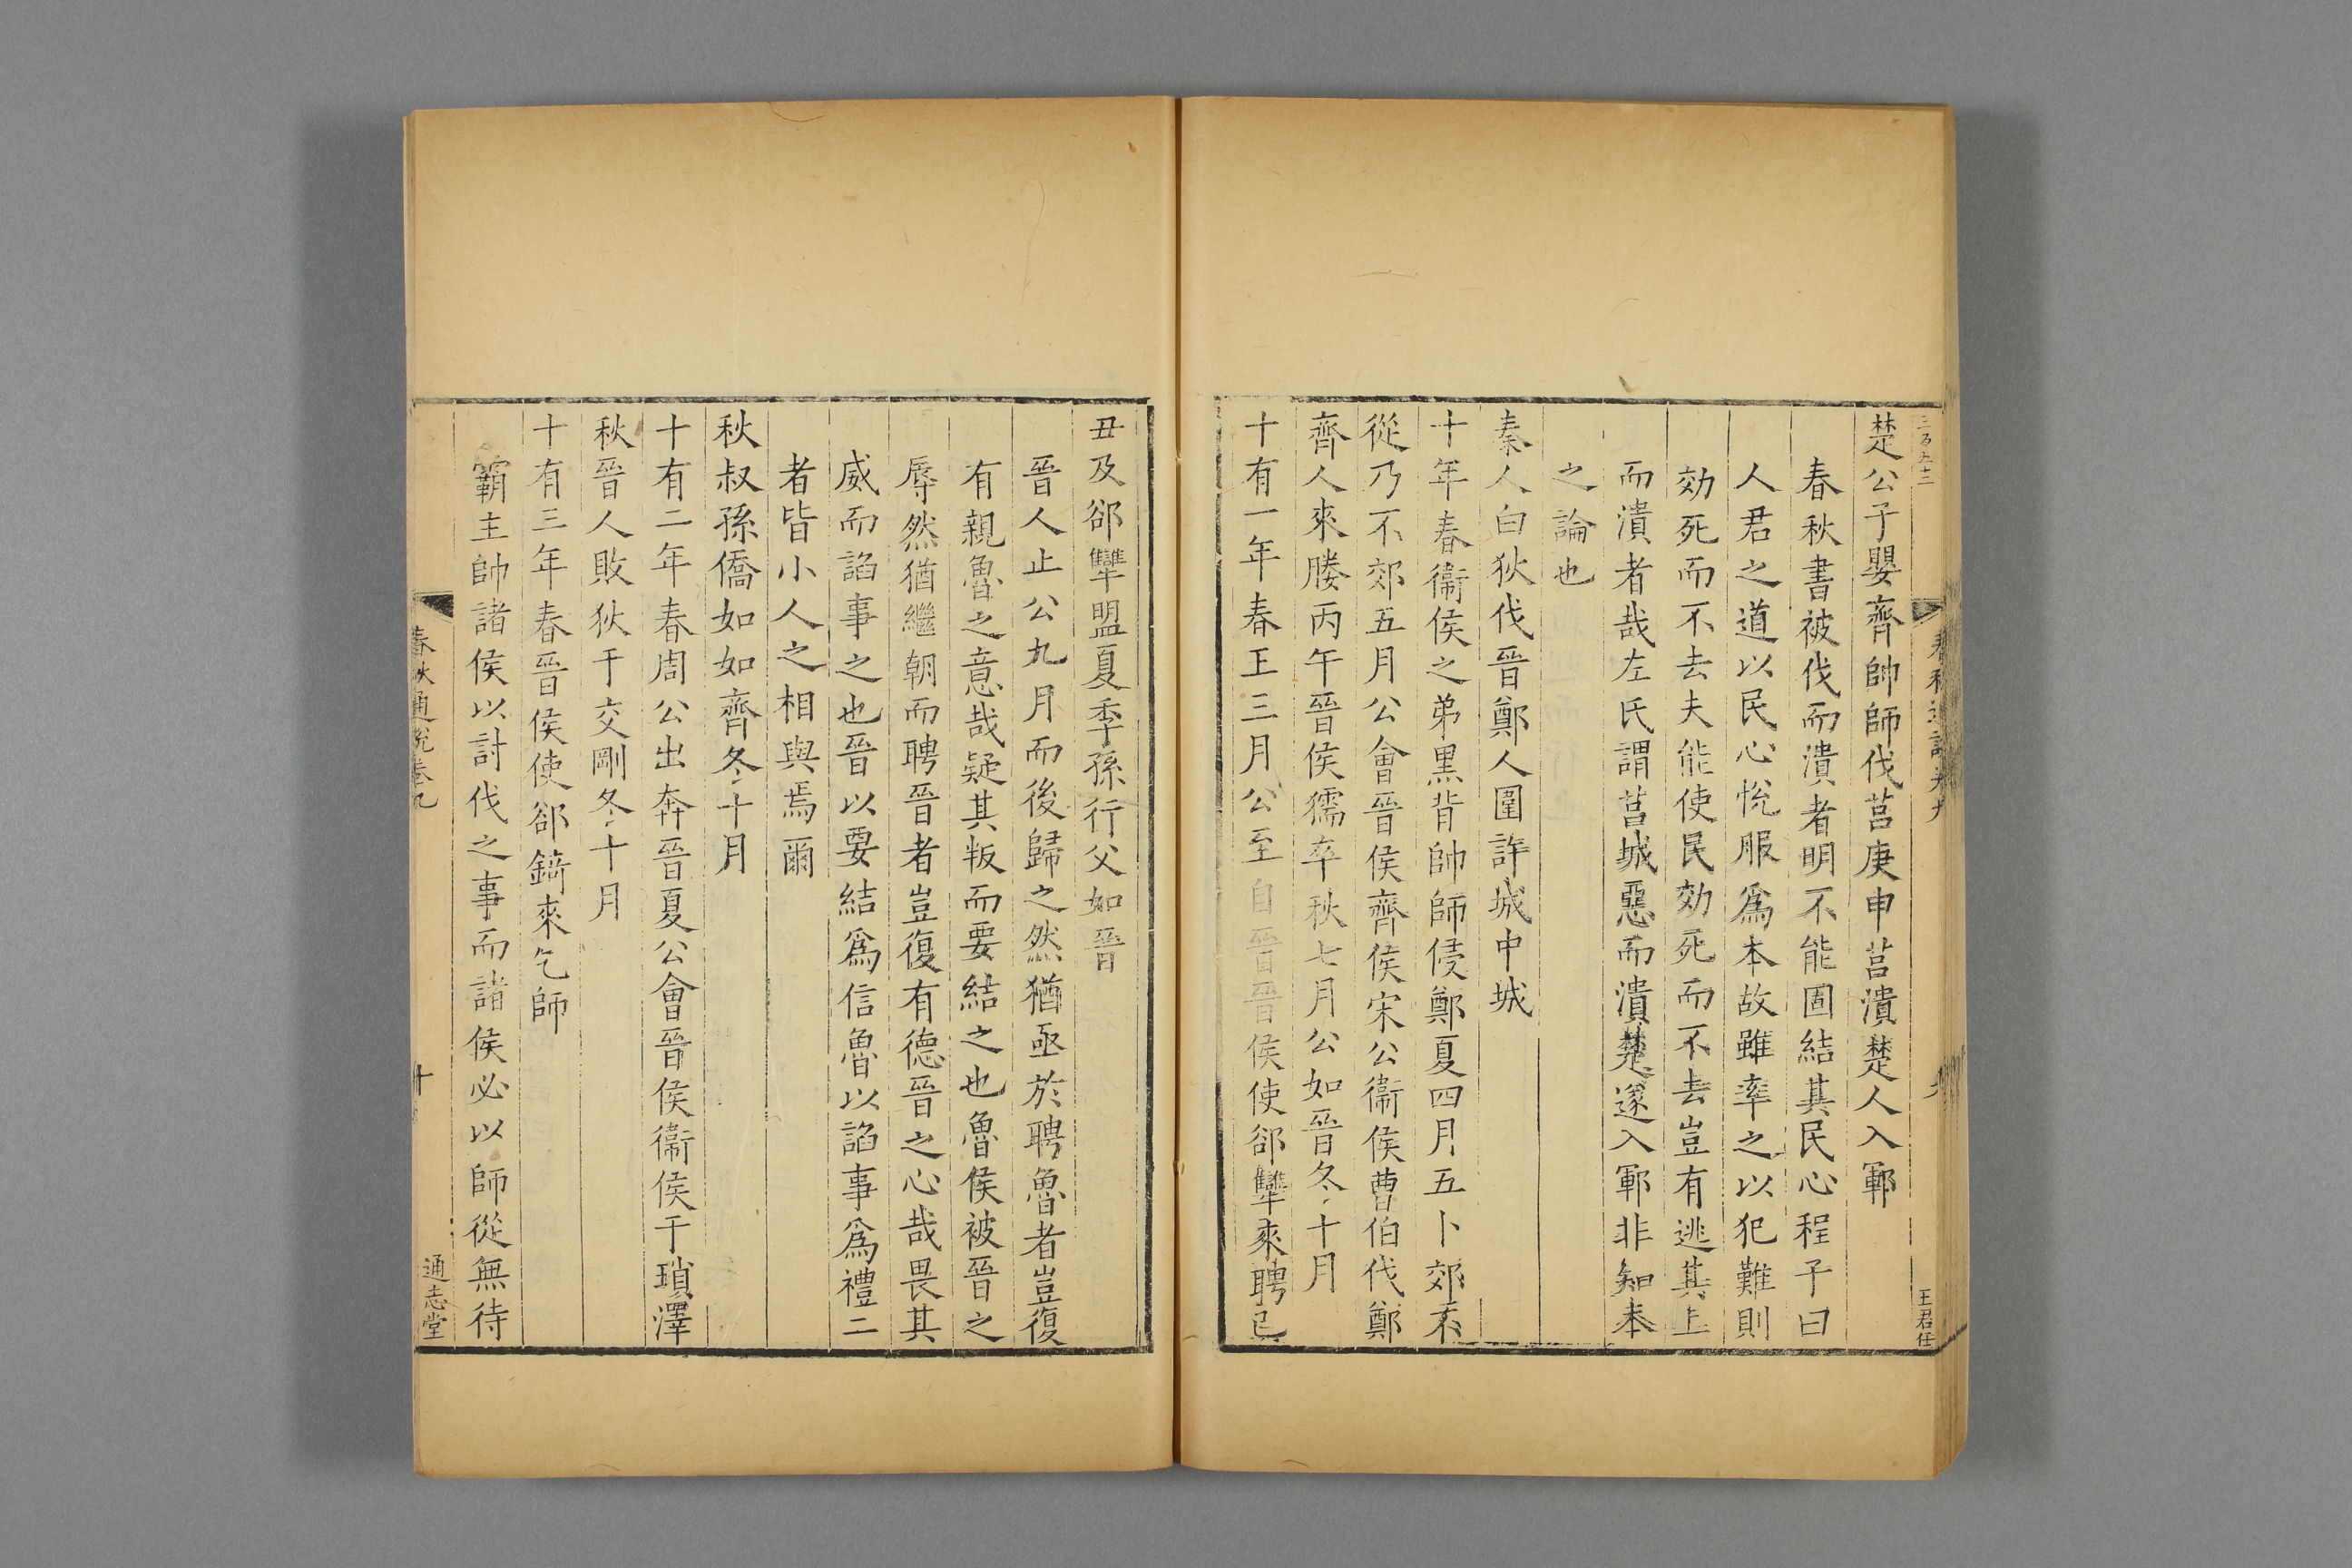 楚公子嬰齊帥師伐莒庚申莒潰楚人入鄆
春秋書被伐而潰者明不能固結其民心程子曰
人君之道以民心悅服爲本故雖率之以犯難則
効死而不去夫能使民効死而不去豈有逃其上
而潰者哉左氏謂莒城惡而潰楚遂入鄆非知本
之論也
秦人白狄伐晉鄭人圍許城中城
十年春衞侯之弟黑背帥師侵鄭夏四月五卜郊不
從乃不郊五月公會晉侯齊侯宋公衞侯曹伯伐鄭
齊人來媵丙午晉侯獳卒秋七月公如晉冬十月
十有一年春王三月公至自晉晉侯使郤犨來聘已
丑及郤犨盟夏季孫行父如晉
晉人止公九月而後歸之然猶亟於聘魯者豈復
有親魯之意哉疑其叛而要結之也魯侯被晉之
辱然猶繼朝而聘晉者豈復有德晉之心哉畏其
威而諂事之也晉以要結爲信魯以諂事爲禮二
者皆小人之相與焉爾
秋叔孫僑如如齊冬十月
十有二年春周公出奔晉夏公會晉侯衞侯于瑣澤
秋晉人敗狄于交剛冬十月
十有三年春晉侯使郤錡來乞師
霸主帥諸侯以討伐之事而諸侯必以師從無待
春秋通說卷九
十
通志堂
王君任